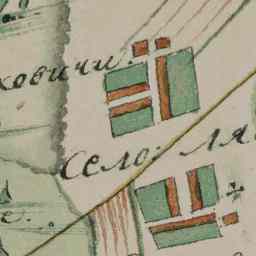 ховичи.
Село: ля
е.